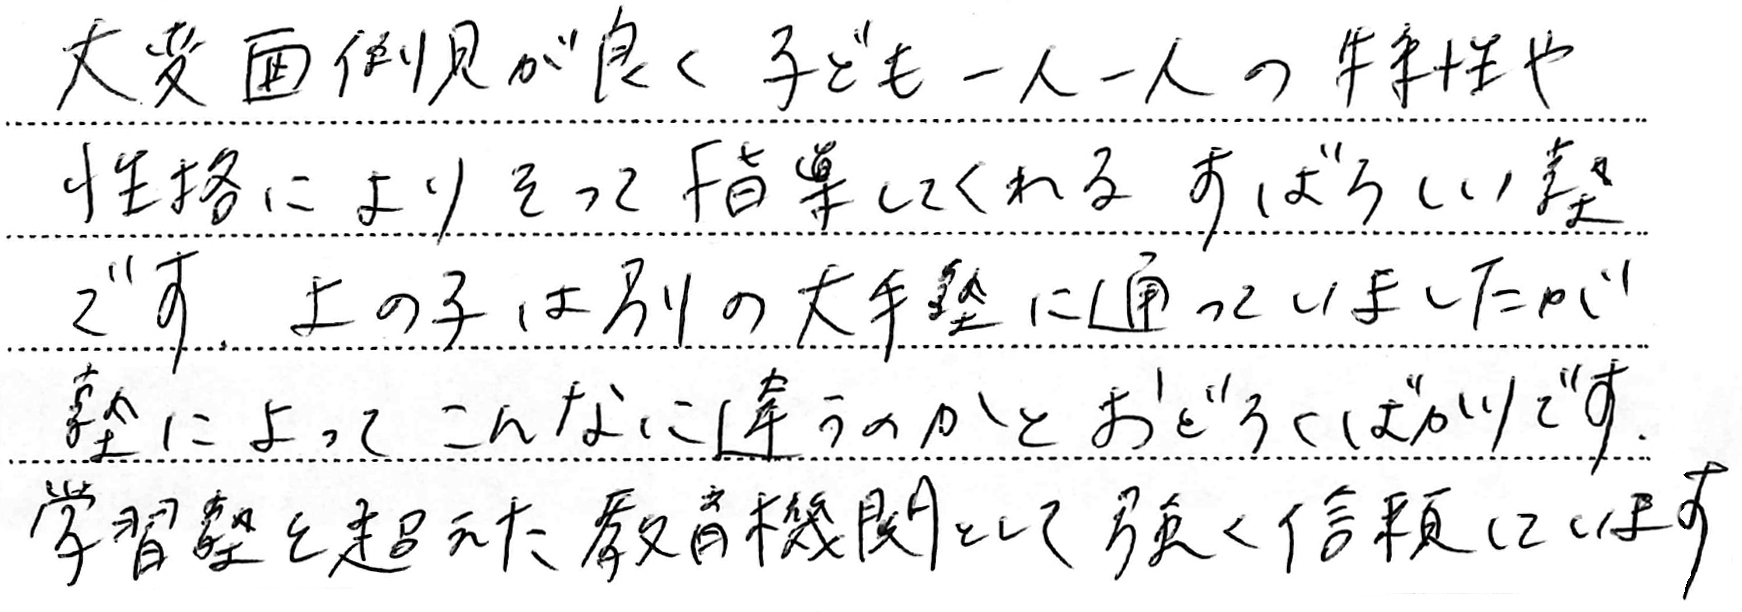 大変面倒見が良く 子ども一人一人の特性や
性格によりそって指導してくれる すばらしい塾
です. 上の子は別の大手塾に通っていましたが
塾によってこんなに違うのかとおどろくばかりです.
学習塾を超えた教育機関として強く信頼しています